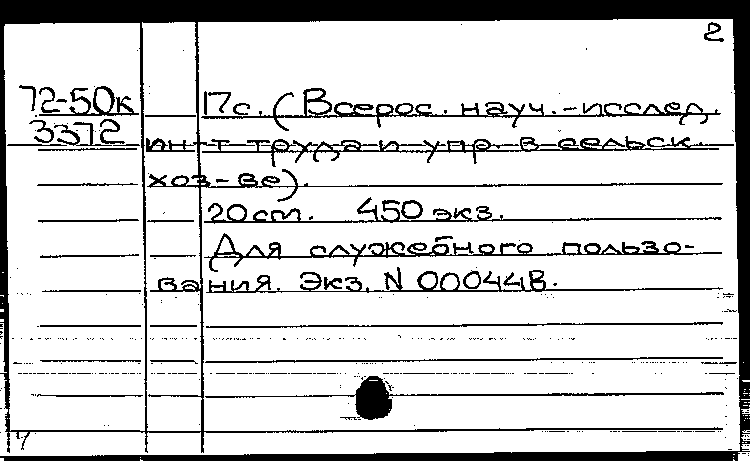 2
72-50к 17с. (Всерос. науч.-исслед.
3372 ин-т труда и упр. в сельск.
хоз-ве).
20 см. 450 экз.
Для служебного пользо-
вания. Экз. N 000448.